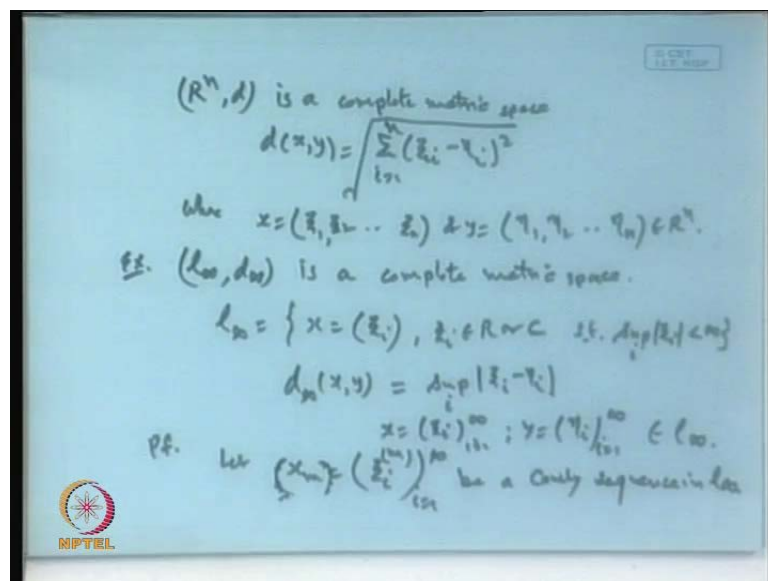 © CET
I.I.T. KGP
(Rⁿ, d) is a complete metric space
d(x,y) = √ Σ_{i=1}^{n} (ξ_i - η_i)²
where x = (ξ_1, ξ_2 .. ξ_n) & y = (η_1, η_2 .. η_n) ∈ Rⁿ.
Ex. (l_∞, d_∞) is a complete metric space.
l_∞ = { x = (ξ_i), ξ_i ∈ R or C s.t. sup_i |ξ_i| < ∞ }
d_∞(x,y) = sup_i |ξ_i - η_i|
x = (ξ_i)_{i=1}^∞ ; y = (η_i)_{i=1}^∞ ∈ l_∞.
Pf. Let {x_m} = (ξ_i^{(m)})_{i=1}^∞ be a Cauchy sequence in l_∞
NPTEL